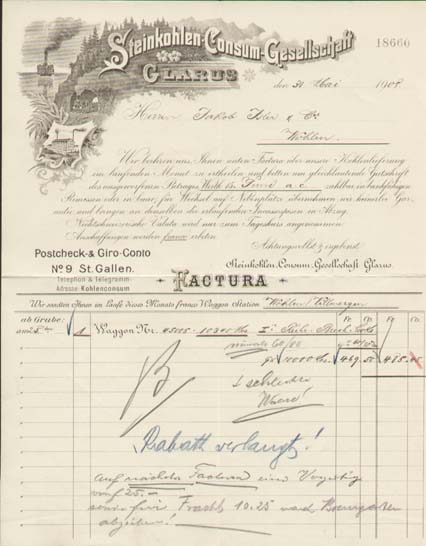 Steinkohlen-Consum-Gesellschaft
GLARUS
18660
den 31 Mai 1908
Herren Jakob Isler & Co
Wohlen
Wir beehren uns, Ihnen unten Factura über unsere Kohlenlieferung
im laufenden Monat zu ertheilen und bitten um gleichlautende Gutschrift
des ausgeworfenen Betrages, Werth 15. Juni a. c. zahlbar in bankfähigen
Rimessen oder in baar; für Wechsel auf Nebenplätze übernehmen wir keinerlei Garantie
und bringen an denselben die erlaufenden Incassospesen in Abzug.
Nichtschweizerische Valuta wird nur zum Tageskurs angenommen.
Anschaffungen werden franco erbeten.
Achtungsvollst & ergebenst
Steinkohlen-Consum-Gesellschaft Glarus.
Postcheck- & Giro-Conto
No 9 St. Gallen.
Telephon & Telegramm-
Adresse: Kohlenconsum
FACTURA
Wir sandten Ihnen im Laufe dieses Monats franco Waggon Station Wohlen
ab Grube:
Fr. Fr.
1 Waggon Nr.
469.50 475.
schlechte
Waare!
Rabatt verlangt!
auf nächster Factura eine
von 25.-
Fracht 10.25 nach Bremgarten
abziehen.